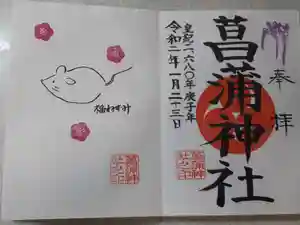 奉拝
菖蒲神社
皇紀二六八〇年庚子年
令和二年一月二十三日